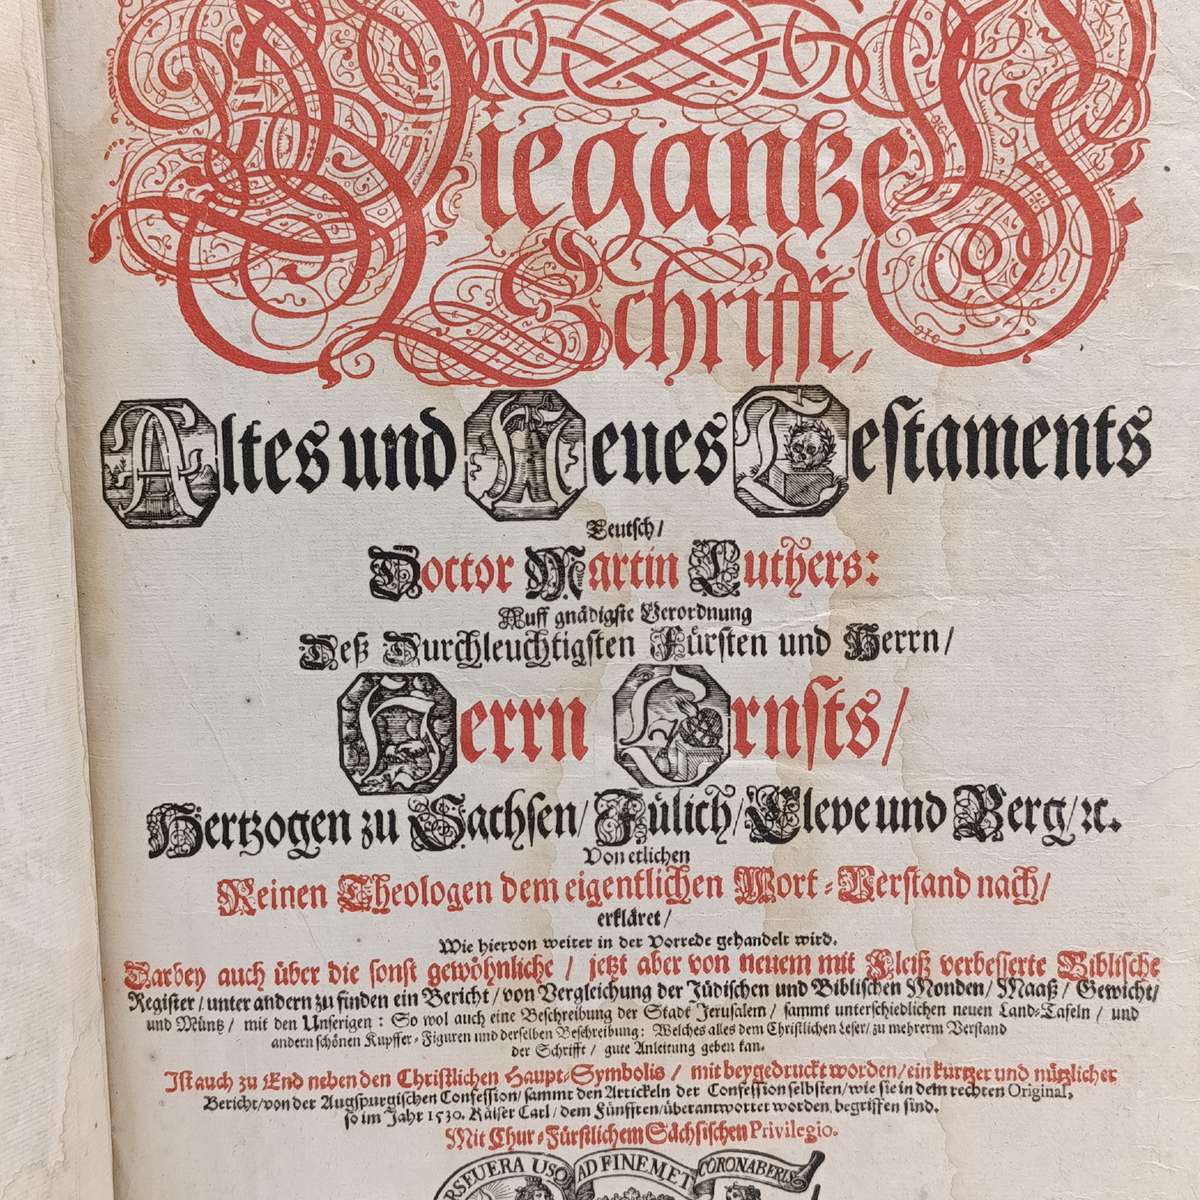 Die gantze
Schrifft,
Altes und Neues Testaments
Teutsch/
Doctor Martin Luthers:
Auff gnädigste Verordnung
Deß Durchleuchtigsten Fürsten und Herrn/
Herrn Ernsts/
Hertzogen zu Sachsen/ Jülich/ Cleve und Berg/ ꝛc.
Von etlichen
Reinen Theologen dem eigentlichen Wort-Verstand nach/
erkläret/
Wie hiervon weiter in der Vorrede gehandelt wird.
Darbey auch über die sonst gewöhnliche/ jetzt aber von neuem mit Fleiß verbesserte Biblische
Register/ unter andern zu finden ein Bericht/ von Vergleichung der Jüdischen und Biblischen Monden/ Maaß/ Gewicht/
und Müntz/ mit den Unserigen: So wol auch eine Beschreibung der Stadt Jerusalem/ sammt unterschiedlichen neuen Land-Tafeln/ und
andern schönen Kupffer-Figuren und derselben Beschreibung: Welches alles dem Christlichen Leser/ zu mehrerm Verstand
der Schrifft/ gute Anleitung geben kan.
Ist auch zu End neben den Christlichen Haupt-Symbolis/ mit beygedruckt worden/ ein kurtzer und nützlicher
Bericht/ von der Augspurgischen Confession/ sammt den Artickeln der Confession selbsten/ wie sie in dem rechten Original,
so im Jahr 1530. Käiser Carl/ dem Fünfften/ überantwortet worden, begriffen sind.
Mit Chur-Fürstlichem Sächsischen Privilegio.
RSFUERA USQ AD FINEM ET CORONABERIS